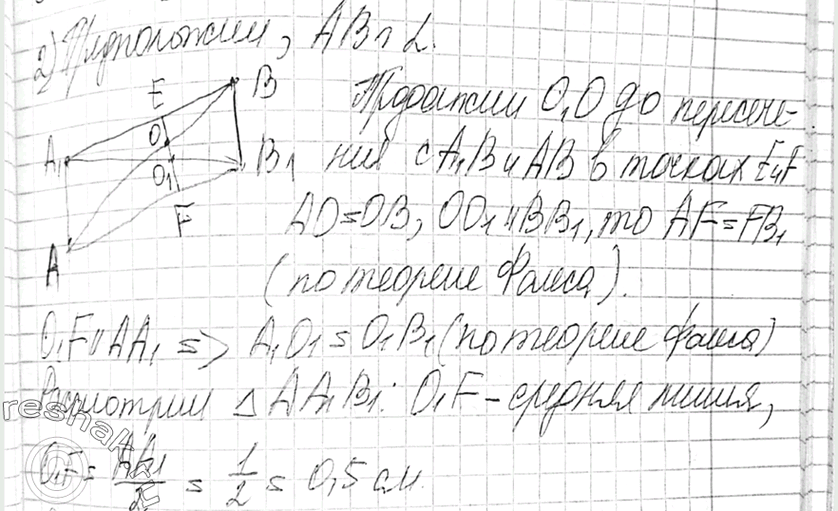 2) Предположим, AB∩α.
E B
Продолжим O₁O до пересече-
O
A₁ O₁ B₁ ния с A₁B и AB в точках E и F
F AO=OB, OO₁ ∥ BB₁, то AF=FB₁
A
(по теореме Фалеса).
O₁F ∥ AA₁ => A₁O₁ = O₁B₁ (по теореме Фалеса)
Рассмотрим △ AA₁B₁: O₁F - средняя линия,
O₁F = AA₁/2 = 1/2 = 0,5 см.